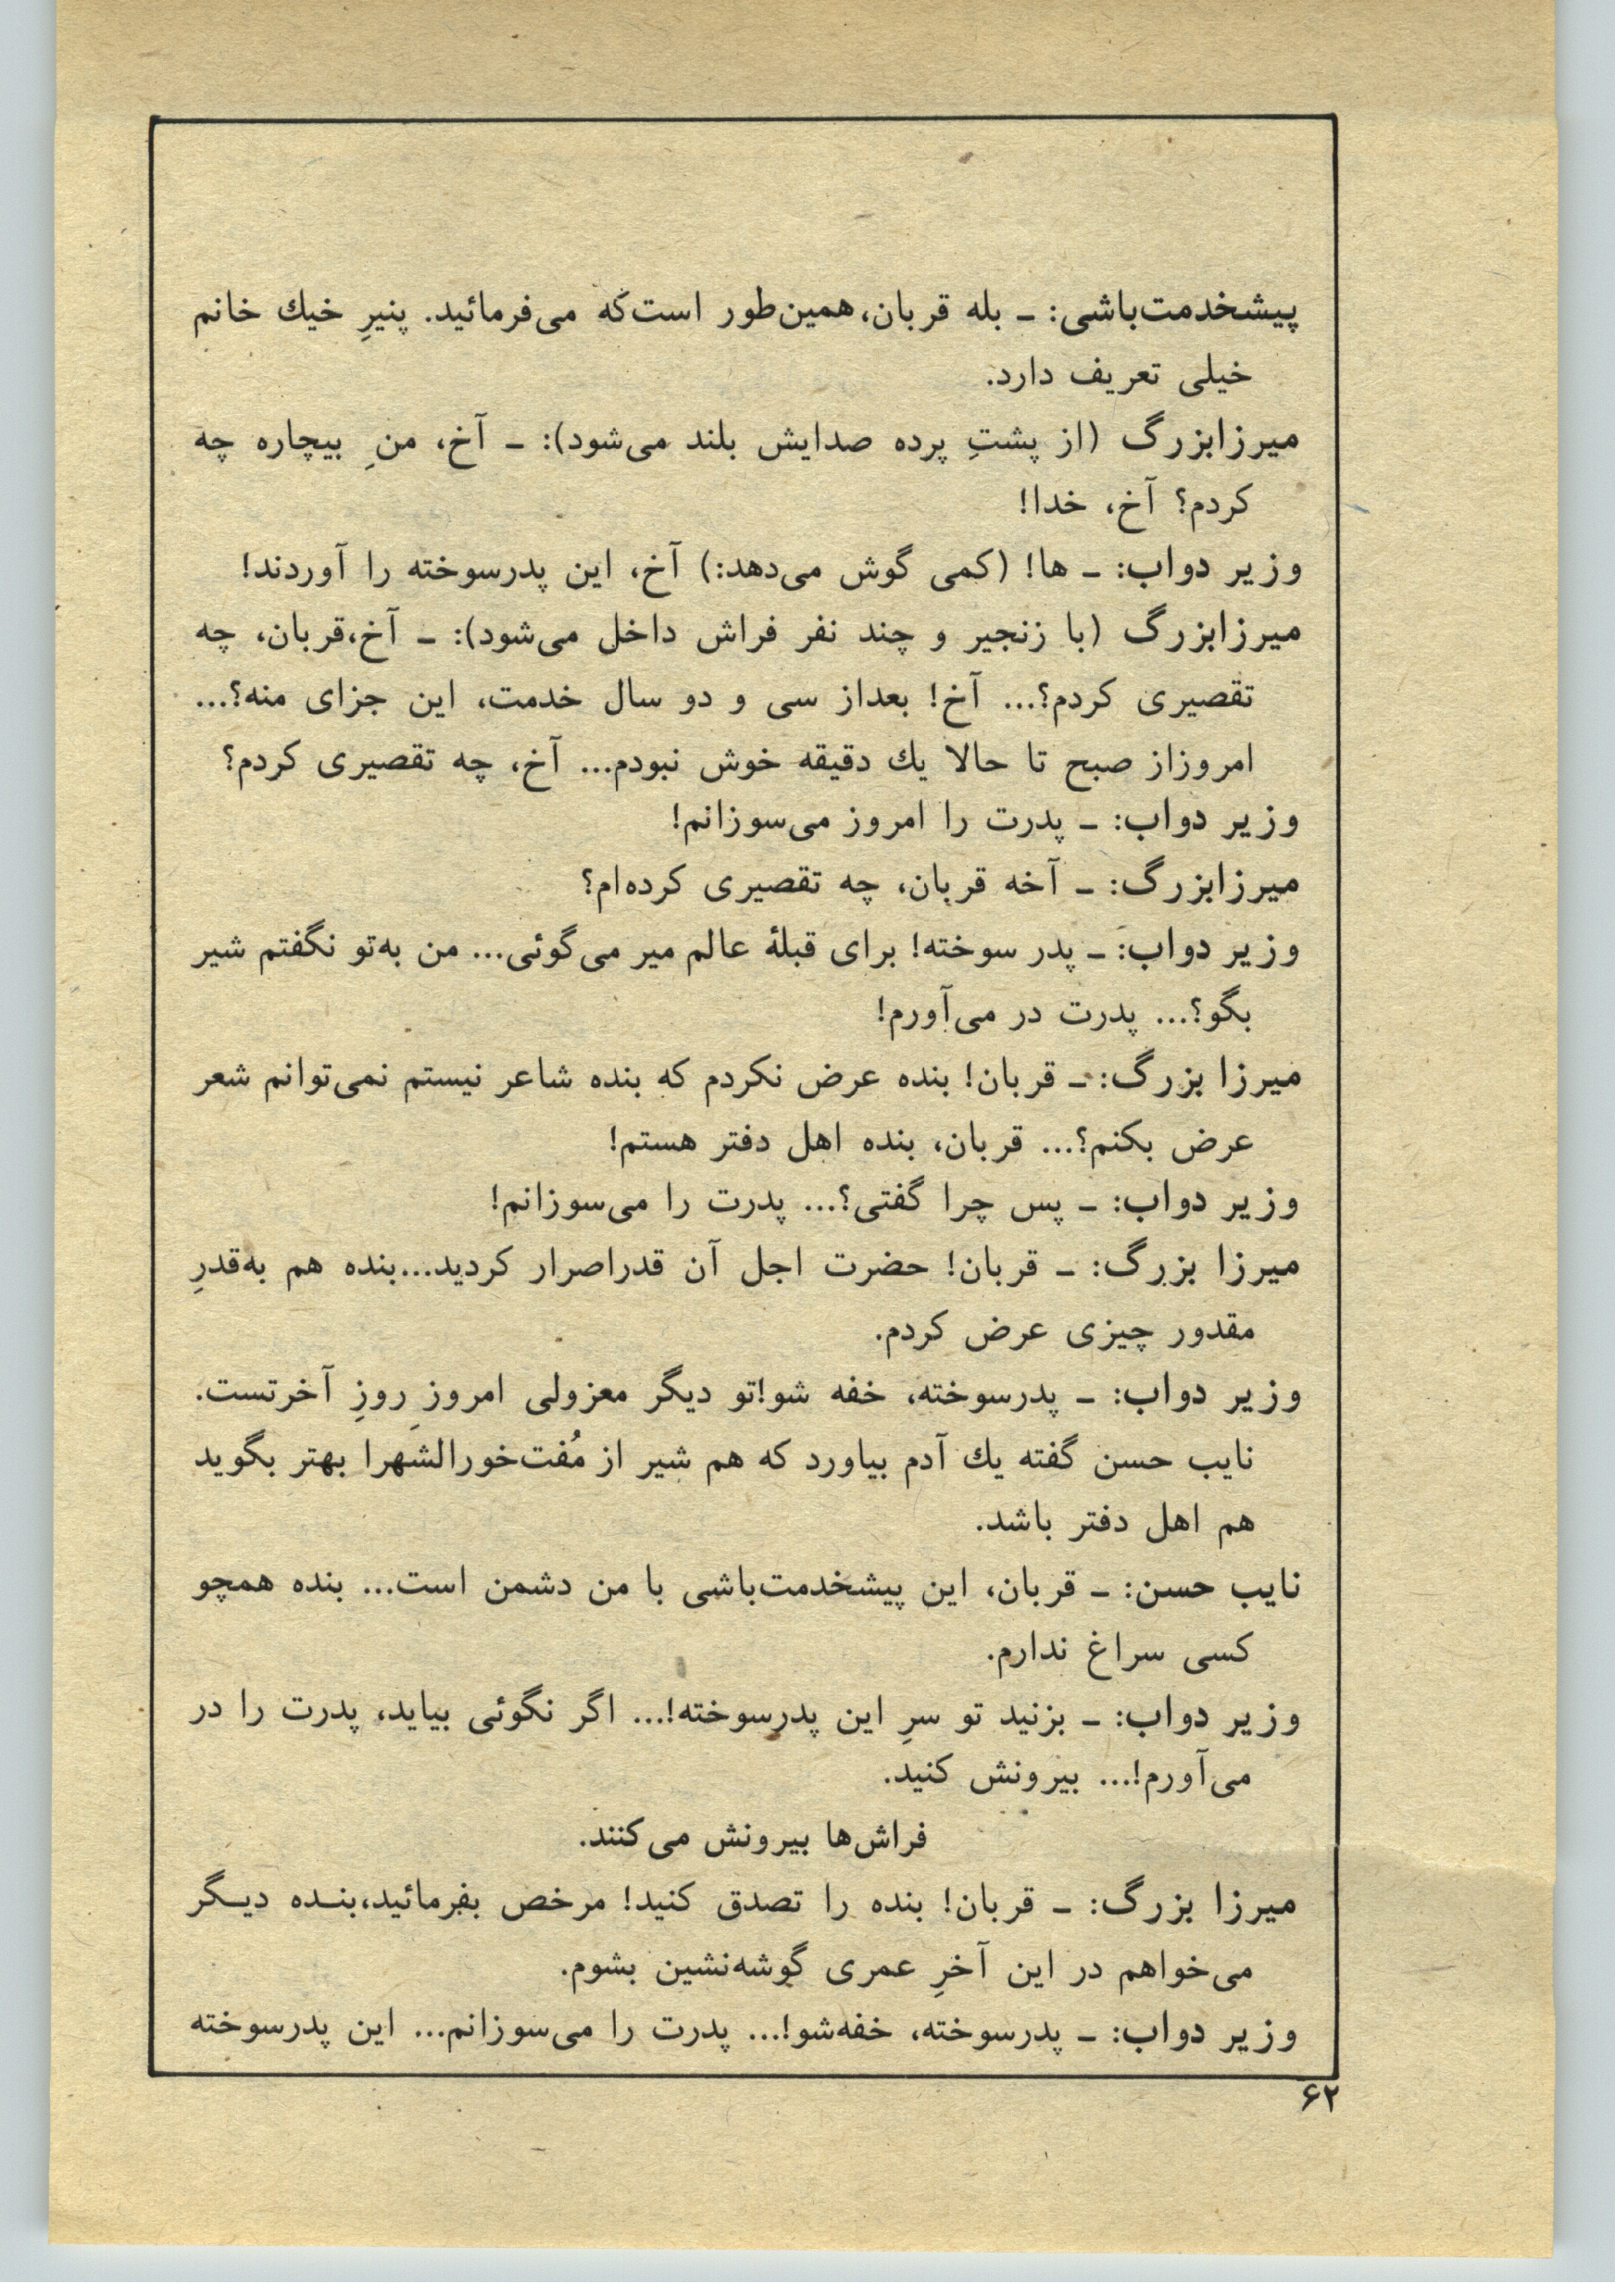 پیشخدمت‌باشی: ـ بله قربان، همین‌طور است‌که می‌فرمائید. پنیرِ خیك خانم
خیلی تعریف دارد.
میرزابزرگ (از پشتِ پرده صدایش بلند می‌شود): ـ آخ، منِ بیچاره چه
کردم؟ آخ، خدا!
وزیر دواب: ـ ها! (کمی گوش می‌دهد:) آخ، این پدرسوخته را آوردند!
میرزابزرگ (با زنجیر و چند نفر فراش داخل می‌شود): ـ آخ،قربان، چه
تقصیری کردم؟... آخ! بعداز سی و دو سال خدمت، این جزای منه؟...
امروزاز صبح تا حالا یك دقیقه خوش نبودم... آخ، چه تقصیری کردم؟
وزیر دواب: ـ پدرت را امروز می‌سوزانم!
میرزابزرگ: ـ آخه قربان، چه تقصیری کرده‌ام؟
وزیر دواب: ـ پدر سوخته! برای قبلهٔ عالم میر می‌گوئی... من به‌تو نگفتم شیر
بگو؟... پدرت در می‌آورم!
میرزا بزرگ: ـ قربان! بنده عرض نکردم که بنده شاعر نیستم نمی‌توانم شعر
عرض بکنم؟... قربان، بنده اهل دفتر هستم!
وزیر دواب: ـ پس چرا گفتی؟... پدرت را می‌سوزانم!
میرزا بزرگ: ـ قربان! حضرت اجل آن قدراصرار کردید...بنده هم به‌قدرِ
مقدور چیزی عرض کردم.
وزیر دواب: ـ پدرسوخته، خفه شو!تو دیگر معزولی امروزِ روزِ آخرتست.
نایب حسن گفته یك آدم بیاورد که هم شیر از مُفت‌خورالشهرا بهتر بگوید
هم اهل دفتر باشد.
نایب حسن: ـ قربان، این پیشخدمت‌باشی با من دشمن است... بنده همچو
کسی سراغ ندارم.
وزیر دواب: ـ بزنید تو سرِ این پدرسوخته!... اگر نگوئی بیاید، پدرت را در
می‌آورم!... بیرونش کنید.
فراش‌ها بیرونش می‌کنند.
میرزا بزرگ: ـ قربان! بنده را تصدق کنید! مرخص بفرمائید،بنـده دیـگر
می‌خواهم در این آخرِ عمری گوشه‌نشین بشوم.
وزیر دواب: ـ پدرسوخته، خفه‌شو!... پدرت را می‌سوزانم... این پدرسوخته
۶۲